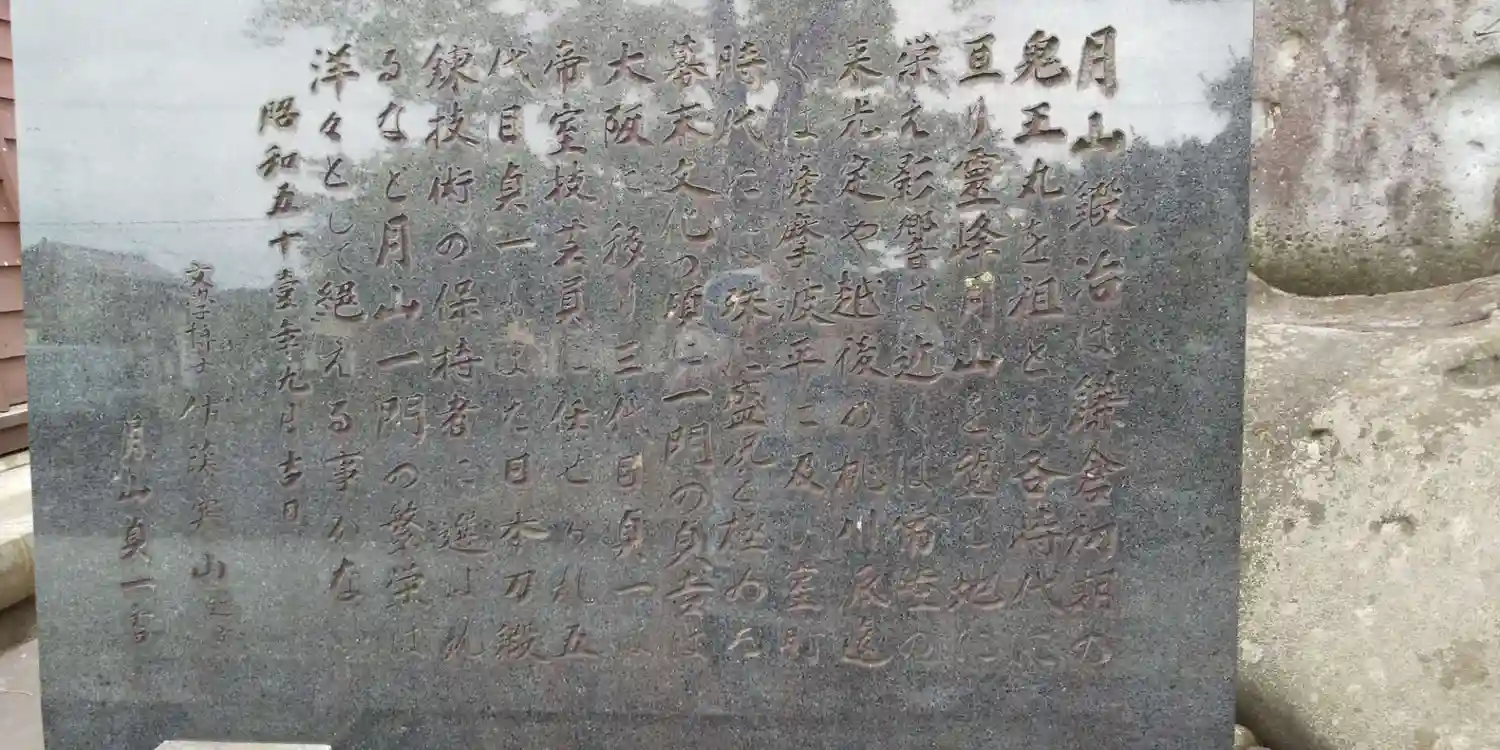 月山鍛冶は鎌倉初期の
鬼王丸を祖とし各時代に
亘り靈峰月山を望む地に
栄え影響は近くは常陸の
来光定や越後の桃川辰遠
くは薩摩波平に及し室町
時代には殊に盛況を極める
幕末文化の頃に一門の貞吉は
大阪に移り三代目貞一は
帝室技芸員に任せられ五
代目貞一もまた日本刀鍛
錬技術の保持者に選ばれ
るなど月山一門の繁栄は
洋々として絶える事がな
昭和五十壹年九月吉日
文学博士
月山貞一書